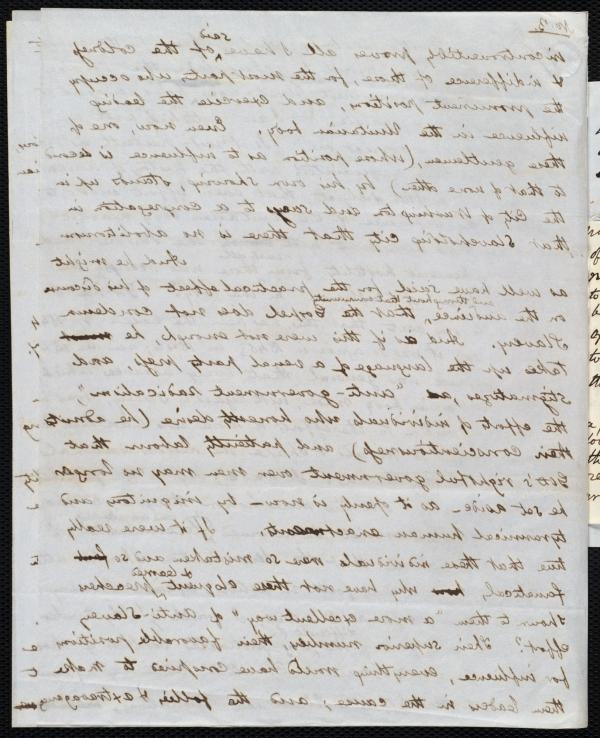 No 2
incontrovertibly prove all I have said of the coldness
& indifference of those, for the most part, who occupy
the prominent position, and exercise the leading
influence in the Unitarian body. Even now, one of
these gentlemen, (whose position as to influence is second
to that of none other) by his own showing, stands up in
the City of Washington and says to a congregation in
that Slaveholding City that there is no abolitionism
which he might
as well have said for the practical effect of his discourse
on the audience, and throughout that community that the Gospel does not condemn
Slavery. And as if this were not enough, he must
take up the language of a venal party press, and
stigmatizes, as, "anti-government radicalism,"
the effort of individuals who honestly desire (he admits
their conscientiousness) and patiently labour that
God's rightful government over men may no longer
be set aside - as it openly is now - by iniquitous and
tyrannical human enactments. If it were really
true that these individuals were so mistaken and so
fanatical, why have not these eloquent & learned preachers
shown to them "a more excellent way" of Anti-Slavery
effort? Their superior number, their favorable position
for influence, everything would have conspired to make
them leaders in the cause; and the follies & extravagances